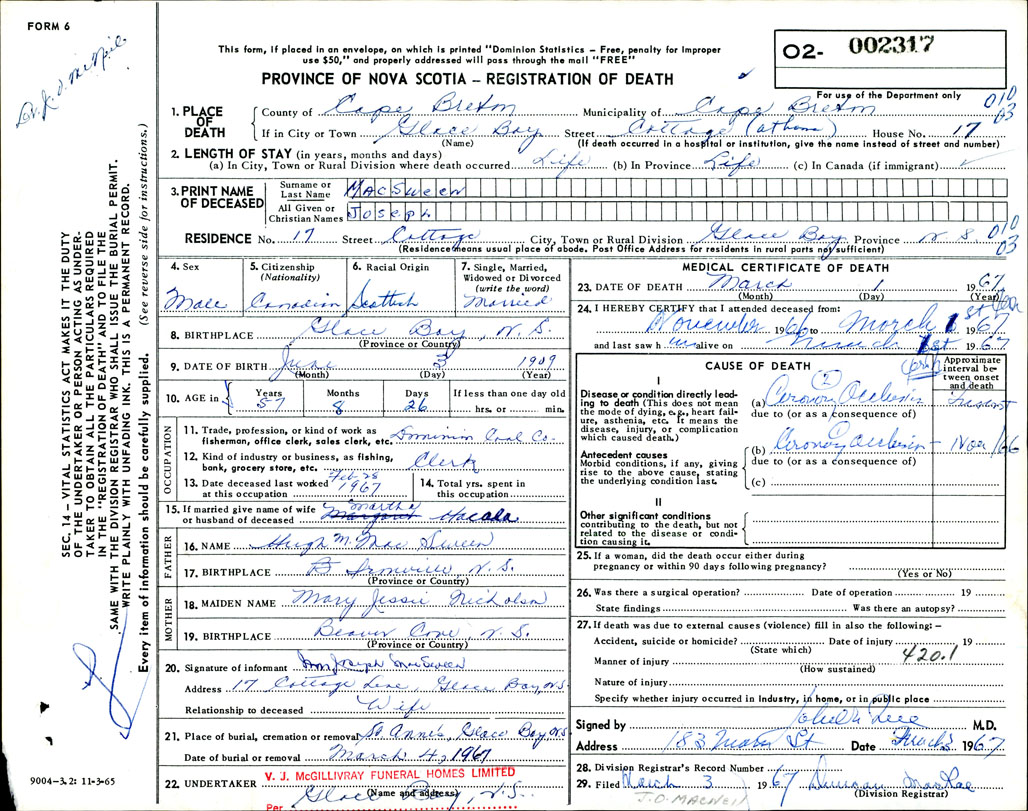 FORM 6
This form, if placed in an envelope, on which is printed "Dominion Statistics – Free, penalty for improper
use $50," and properly addressed will pass through the mail "FREE"
PROVINCE OF NOVA SCOTIA – REGISTRATION OF DEATH
O2- 002317
For use of the Department only
010
03
1. PLACE OF DEATH
County of Cape Breton Municipality of Cape Breton
If in City or Town Glace Bay Street Cottage (at home) House No. 17
(Name) (If death occurred in a hospital or institution, give the name instead of street and number)
2. LENGTH OF STAY (in years, months and days)
(a) In City, Town or Rural Division where death occurred Life (b) In Province Life (c) In Canada (if immigrant)
3. PRINT NAME OF DECEASED
Surname or Last Name MacSween
All Given or Christian Names Joseph
RESIDENCE No. 17 Street Cottage City, Town or Rural Division Glace Bay Province N S. 010 03
(Residence means usual place of abode. Post Office Address for residents in rural parts not sufficient)
4. Sex Male
5. Citizenship (Nationality) Canadian
6. Racial Origin Scottish
7. Single, Married, Widowed or Divorced (write the word) Married
8. BIRTHPLACE Glace Bay, N. S.
(Province or Country)
9. DATE OF BIRTH June 3 1909
(Month) (Day) (Year)
10. AGE in Years 57 Months 8 Days 26 If less than one day old hrs. or min.
OCCUPATION
11. Trade, profession, or kind of work as fisherman, office clerk, sales clerk, etc. Dominion Coal Co.
12. Kind of industry or business, as fishing, bank, grocery store, etc. Clerk
13. Date deceased last worked at this occupation Feb. 28 1967
14. Total yrs. spent in this occupation
15. If married give name of wife or husband of deceased Martha Margaret
FATHER
16. NAME Hugh M. Mac Sween
17. BIRTHPLACE B N.S.
(Province or Country)
MOTHER
18. MAIDEN NAME Mary Jessie Nicholson
19. BIRTHPLACE Beaver Cove, N. S.
(Province or Country)
20. Signature of informant Mrs Joseph MacSween
Address 17 Cottage Lane, Glace Bay, N.S.
Relationship to deceased Wife
21. Place of burial, cremation or removal St Anne's Glace Bay, NS
Date of burial or removal March 4, 1967
22. UNDERTAKER V. J. McGILLIVRAY FUNERAL HOMES LIMITED
(Name and address)
Per Glace Bay, N.S.
MEDICAL CERTIFICATE OF DEATH
23. DATE OF DEATH March 1 1967
(Month) (Day) (Year)
24. I HEREBY CERTIFY that I attended deceased from:
November 1966 to March 1st 1967
and last saw him alive on March 1st 1967
CAUSE OF DEATH
Approximate interval between onset and death
I
Disease or condition directly leading to death (This does not mean the mode of dying, e.g., heart failure, asthenia, etc. It means the disease, injury, or complication which caused death.)
(a) Coronary Occlusion
due to (or as a consequence of)
Antecedent causes
Morbid conditions, if any, giving rise to the above cause, stating the underlying condition last.
(b) Coronary occlusion – Nov/66
due to (or as a consequence of)
(c)
II
Other significant conditions contributing to the death, but not related to the disease or condition causing it.
25. If a woman, did the death occur either during
pregnancy or within 90 days following pregnancy?
(Yes or No)
26. Was there a surgical operation? Date of operation 19
State findings Was there an autopsy?
27. If death was due to external causes (violence) fill in also the following: –
Accident, suicide or homicide? Date of injury 19
(State which)
420.1
Manner of injury
(How sustained)
Nature of injury
Specify whether injury occurred in Industry, in home, or in public place
Signed by M.D.
Address 183 Main St Date 1967
28. Division Registrar's Record Number
29. Filed March 3 1967 Duncan MacRae
(Division Registrar)
J.O. MACNEIL
SEC. 14 – VITAL STATISTICS ACT MAKES IT THE DUTY
OF THE UNDERTAKER OR PERSON ACTING AS UNDER-
TAKER TO OBTAIN ALL THE PARTICULARS REQUIRED
IN THE "REGISTRATION OF DEATH" AND TO FILE THE
SAME WITH THE DIVISION REGISTRAR WHO SHALL ISSUE THE BURIAL PERMIT.
WRITE PLAINLY WITH UNFADING INK. THIS IS A PERMANENT RECORD.
Every item of information should be carefully supplied. (See reverse side for instructions.)
9004-3.2: 11-3-65